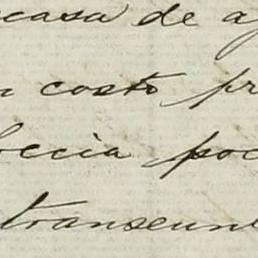 casa de a
costo pr
occia poc
transeun